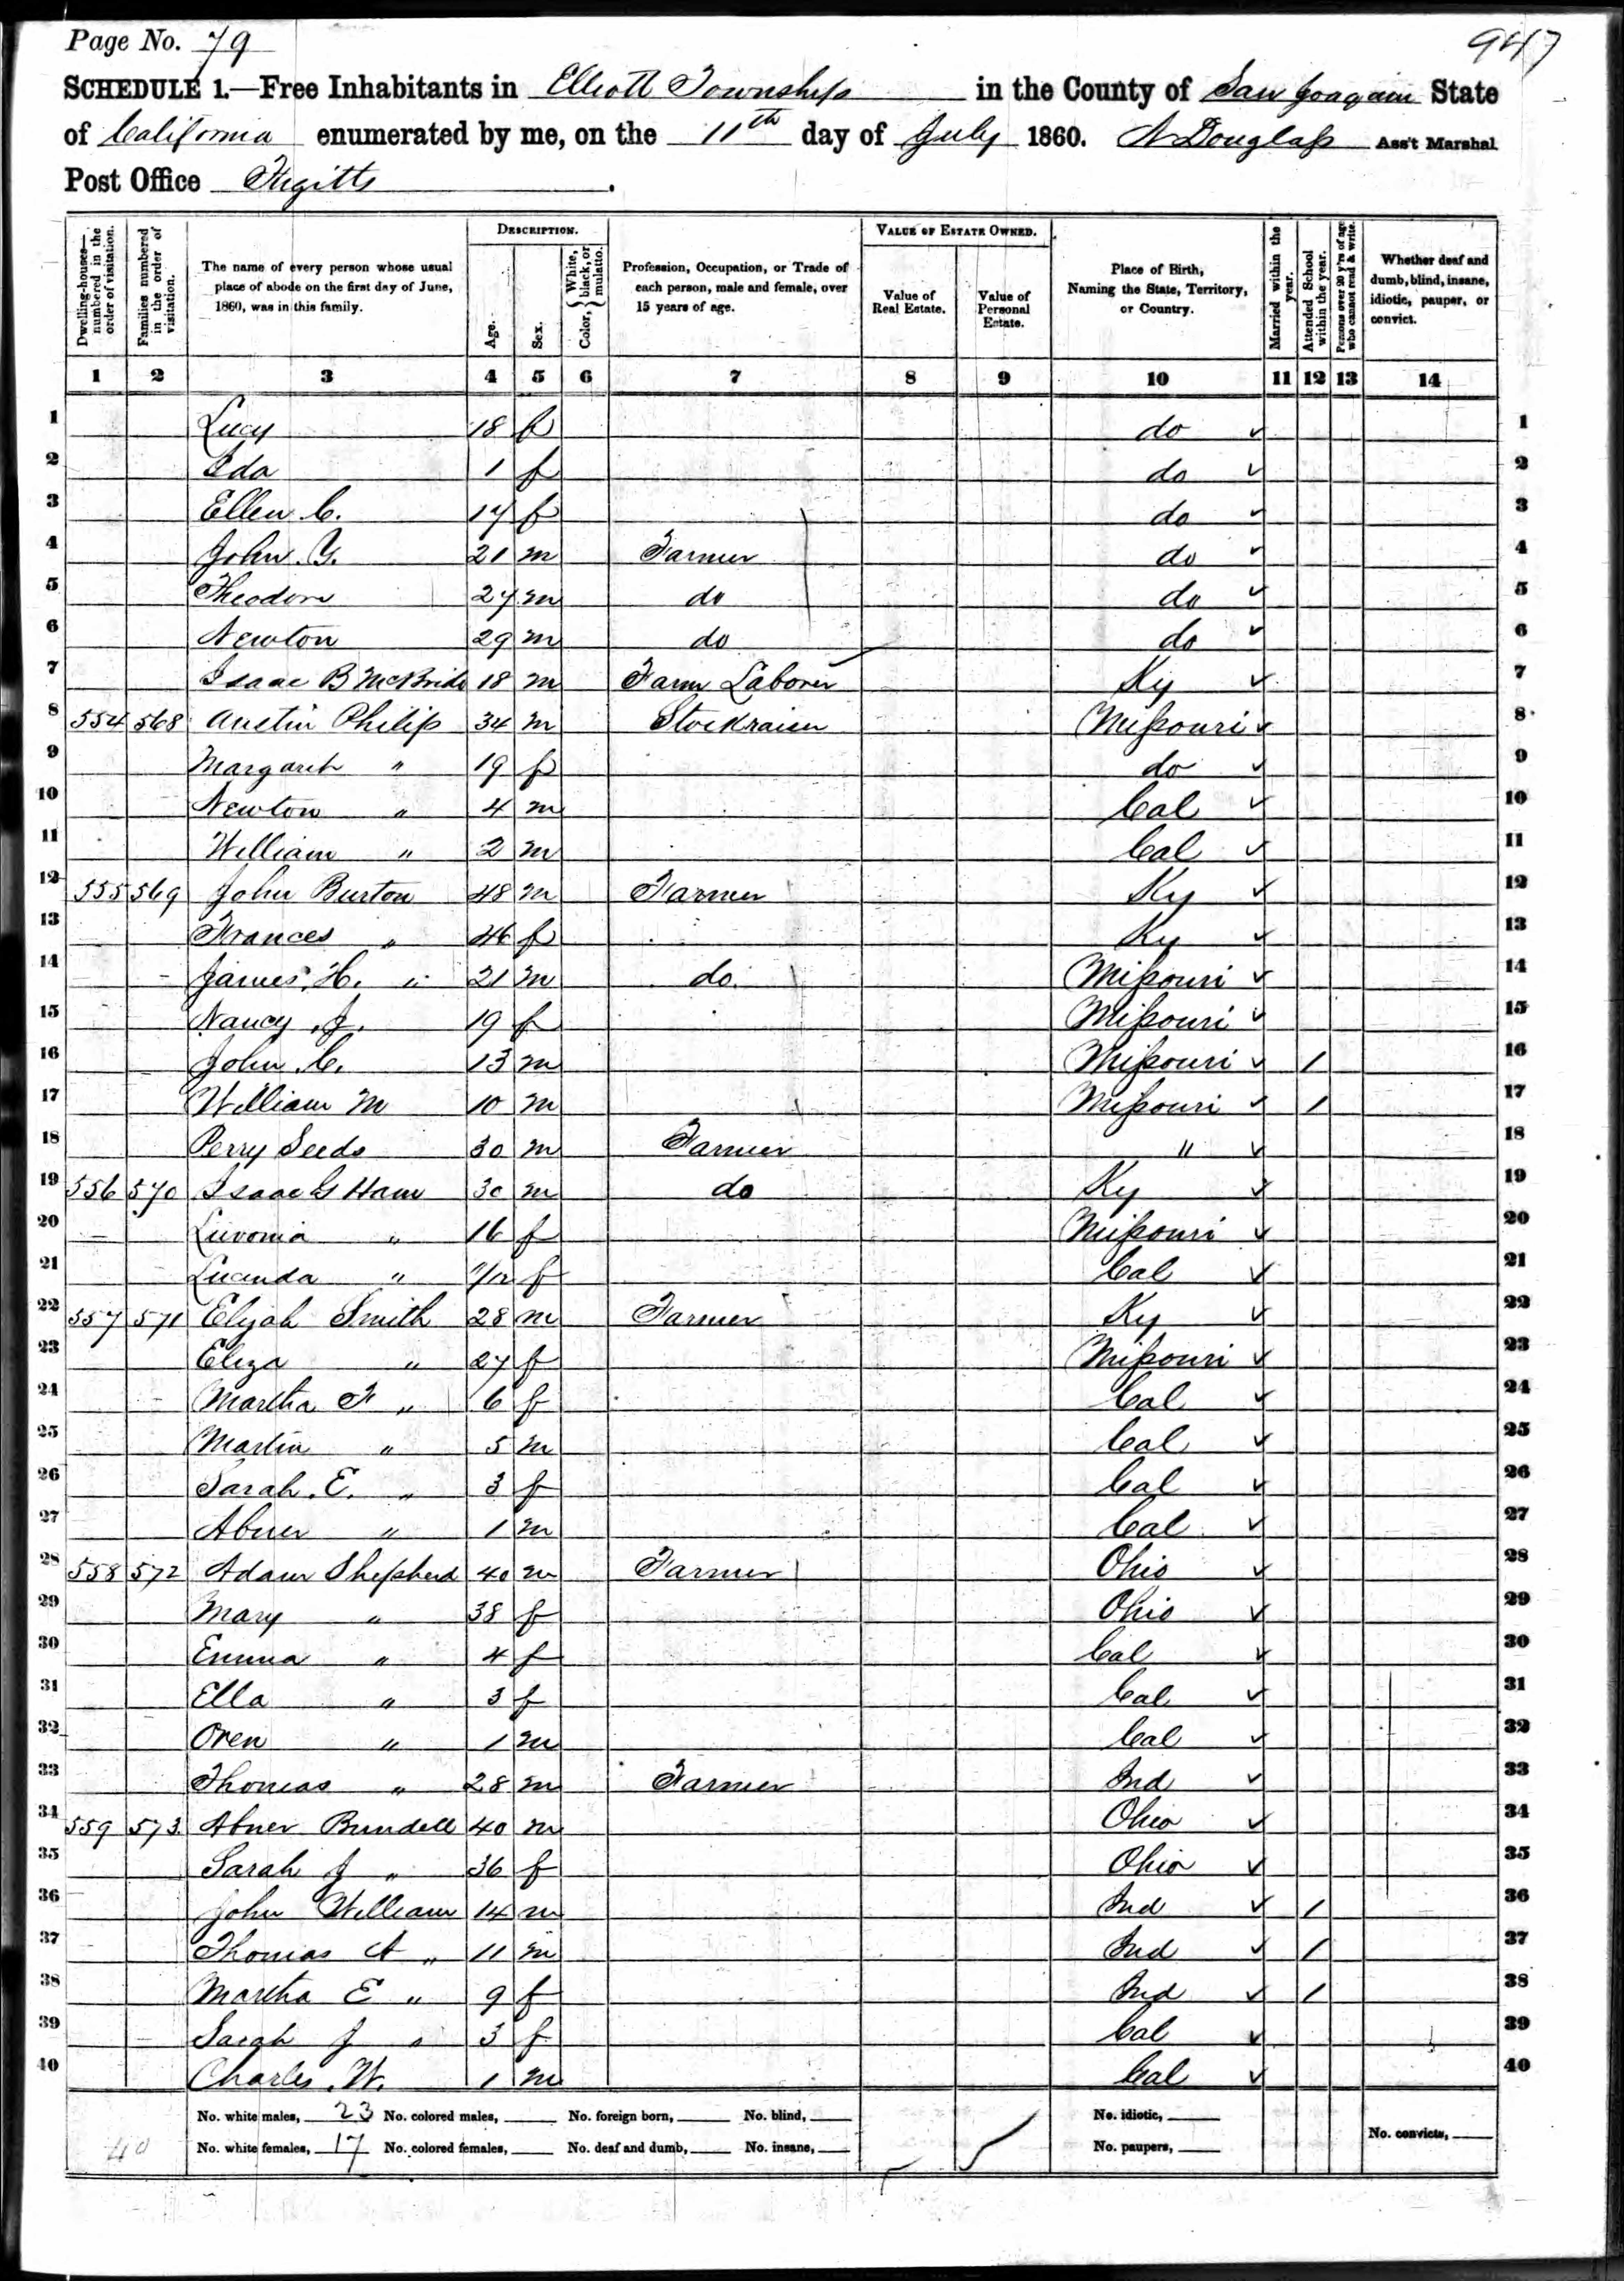 Page No. 79
947
SCHEDULE 1.—Free Inhabitants in Elliott Township in the County of San Joaquin State
of California enumerated by me, on the 11th day of July 1860. A Douglass Ass't Marshal.
Post Office
Dwelling-houses—numbered in the order of visitation.
Families numbered in the order of visitation.
The name of every person whose usual place of abode on the first day of June, 1860, was in this family.
DESCRIPTION.
Age.
Sex.
Color, { White, black, or mulatto.
Profession, Occupation, or Trade of each person, male and female, over 15 years of age.
VALUE OF ESTATE OWNED.
Value of Real Estate.
Value of Personal Estate.
Place of Birth, Naming the State, Territory, or Country.
Married within the year.
Attended School within the year.
Persons over 20 y'rs of age who cannot read & write.
Whether deaf and dumb, blind, insane, idiotic, pauper, or convict.
1 2 3 4 5 6 7 8 9 10 11 12 13 14
1 Lucy 18 f do 1
2 Ida 1 f do 2
3 Ellen C. 17 f do 3
4 John Y. 21 m Farmer do 4
5 Theodore 27 m do do 5
6 Newton 29 m do do 6
7 Isaac B McBride 18 m Farm Laborer Ky 7
8 554 568 Austin Philip 34 m Stockraiser Missouri 8
9 Margaret " 19 f do 9
10 Newton " 4 m Cal 10
11 William " 2 m Cal 11
12 555 569 John Burton 48 m Farmer Ky 12
13 Frances " 46 f Ky 13
14 James H. " 21 m do Missouri 14
15 Nancy J. 19 f Missouri 15
16 John C. 13 m Missouri 1 16
17 William M 10 m Missouri 1 17
18 Perry Seeds 30 m Farmer " 18
19 556 570 Isaac G Ham 30 m do Ky 19
20 Luvonia " 16 f Missouri 20
21 Luanda " /12 f Cal 21
22 557 571 Elijah Smith 28 m Farmer Ky 22
23 Eliza " 27 f Missouri 23
24 Martha F " 6 f Cal 24
25 Martin " 5 m Cal 25
26 Sarah E. " 3 f Cal 26
27 Abner " 1 m Cal 27
28 558 572 Adam Shepherd 40 m Farmer Ohio 28
29 Mary " 38 f Ohio 29
30 Emma " 4 f Cal 30
31 Ella " 3 f Cal 31
32 Oren " 1 m Cal 32
33 Thomas " 28 m Farmer Ind 33
34 559 573 Abner Bundell 40 m Ohio 34
35 Sarah J " 36 f Ohio 35
36 John William 14 m Ind 1 36
37 Thomas A " 11 m Ind 1 37
38 Martha E " 9 f Ind 1 38
39 Sarah J " 3 f Cal 39
40 Charles W. 1 m Cal 40
No. white males, 23 No. colored males, No. foreign born, No. blind, No. idiotic,
40 No. white females, 17 No. colored females, No. deaf and dumb, No. insane, No. paupers, No. convicts,